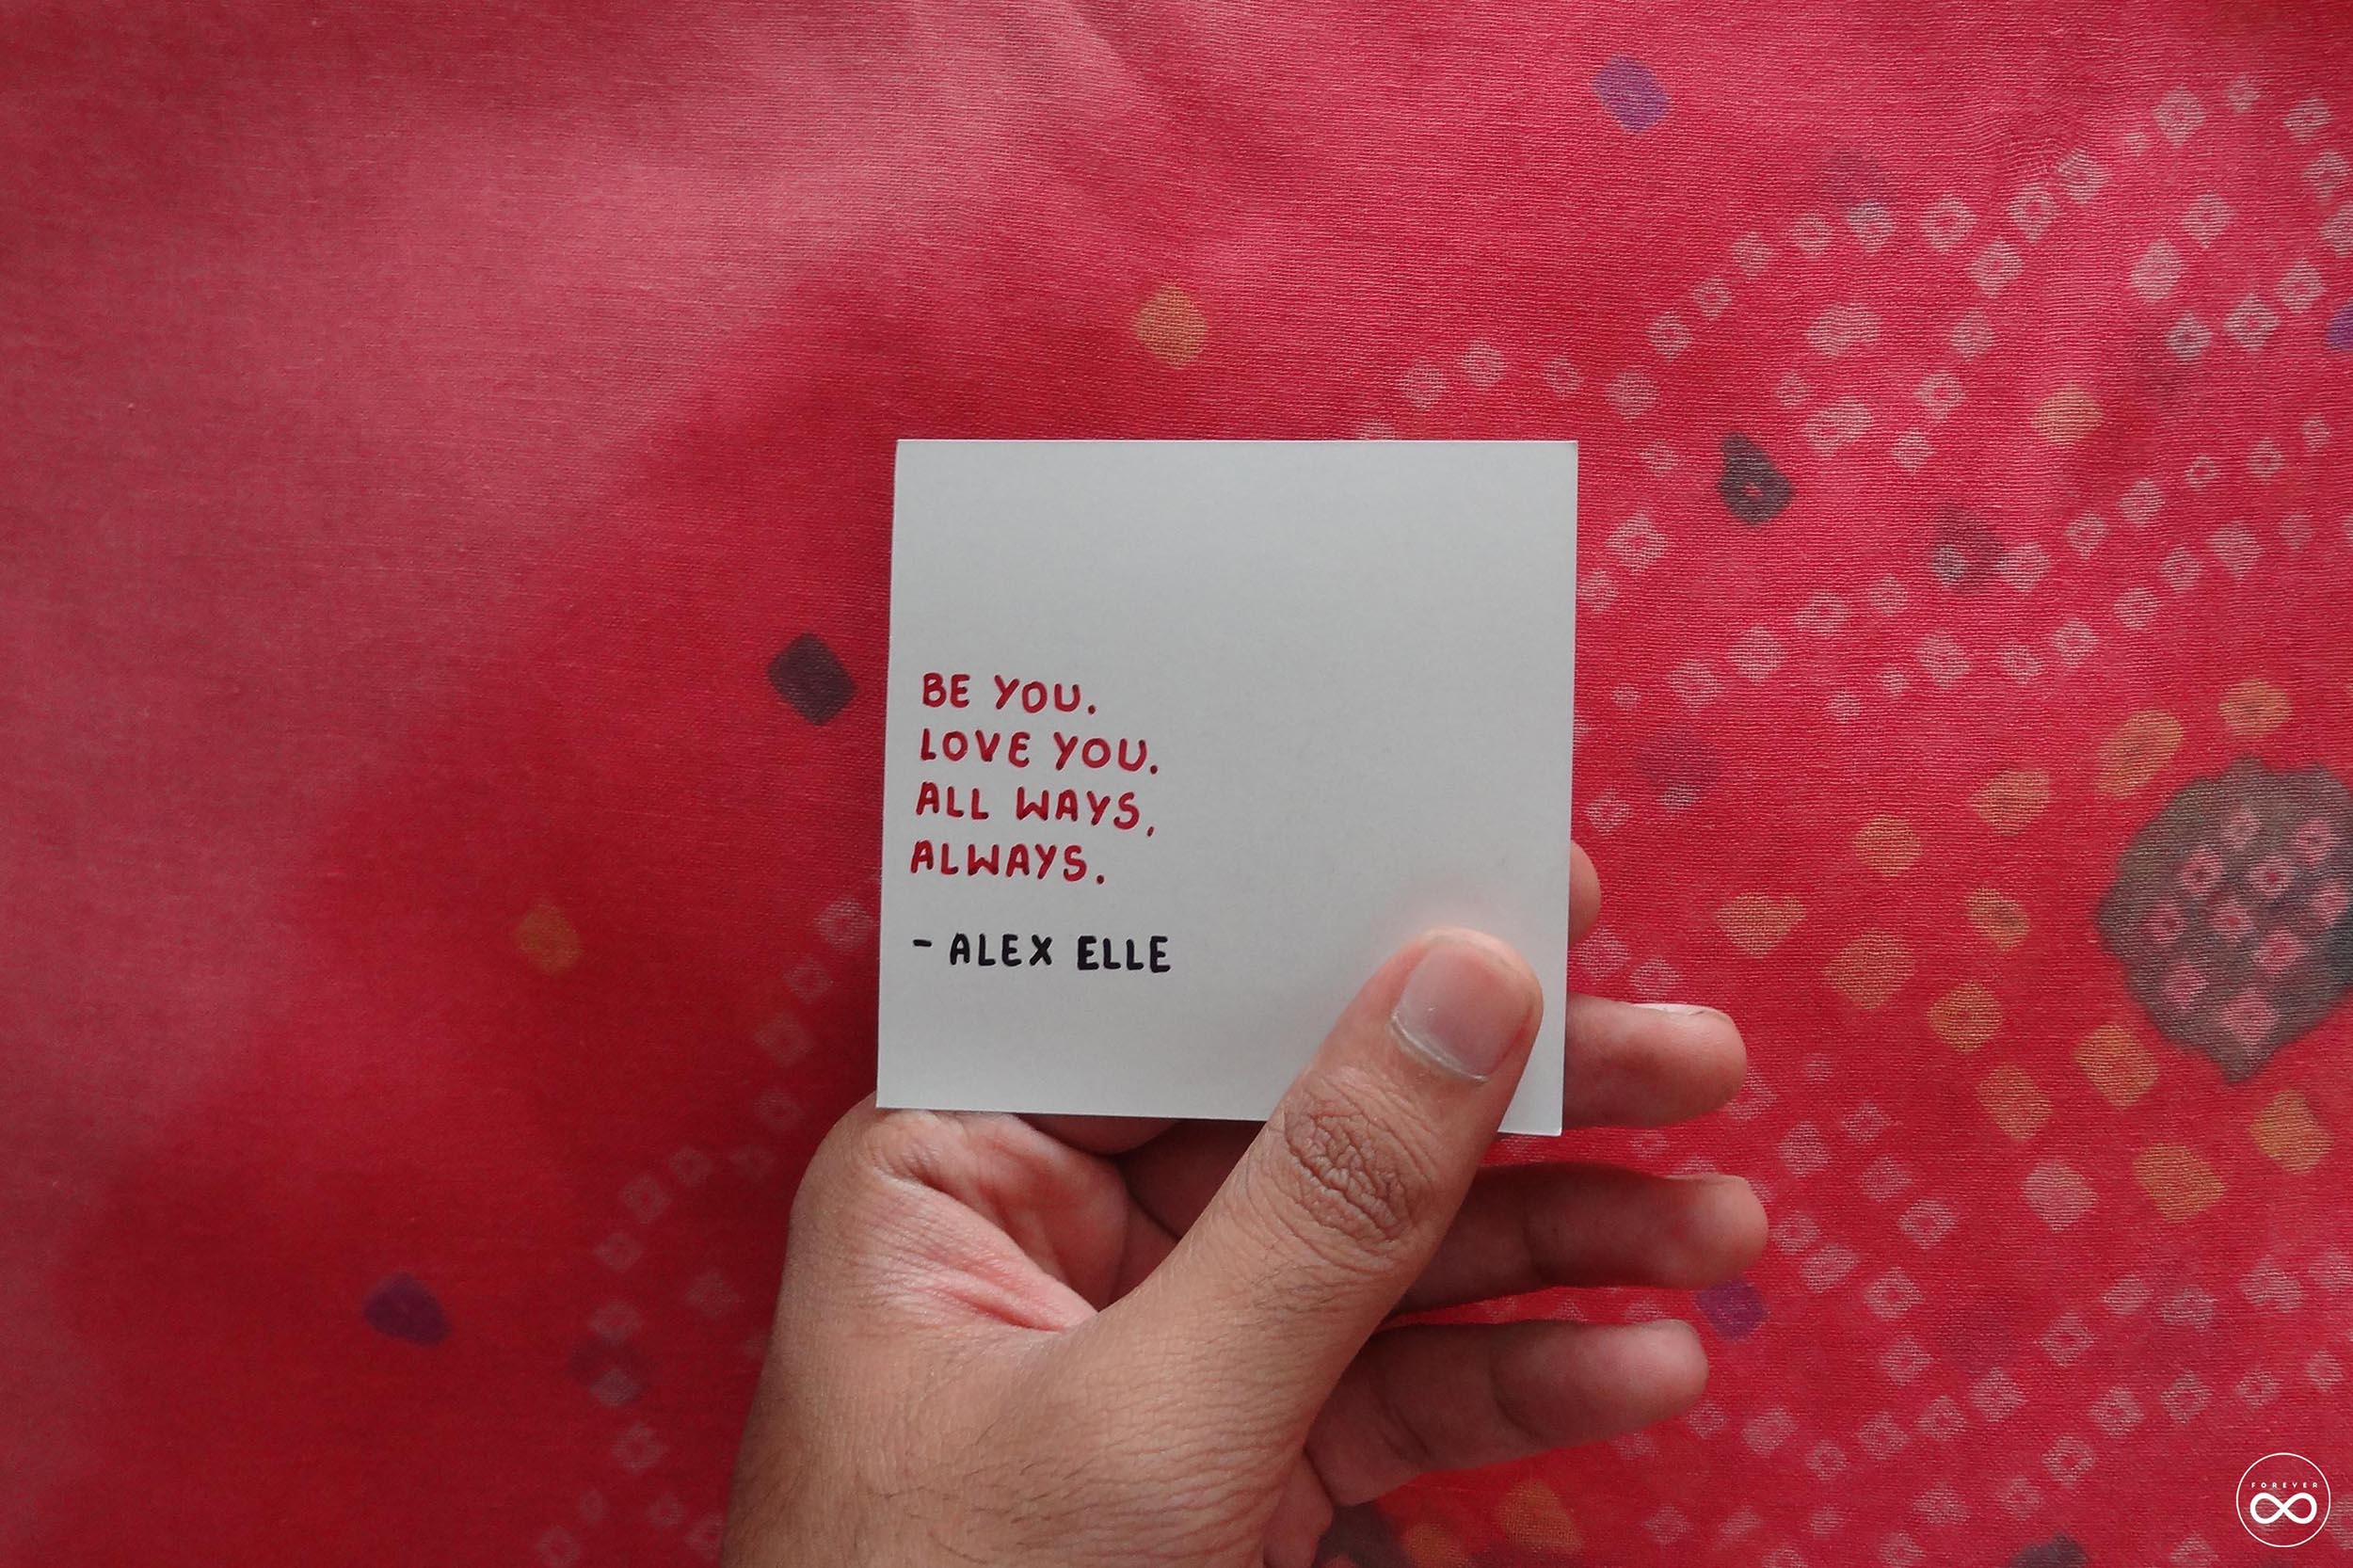 BE YOU.
LOVE YOU.
ALL WAYS,
ALWAYS.
- ALEX ELLE
FOREVER